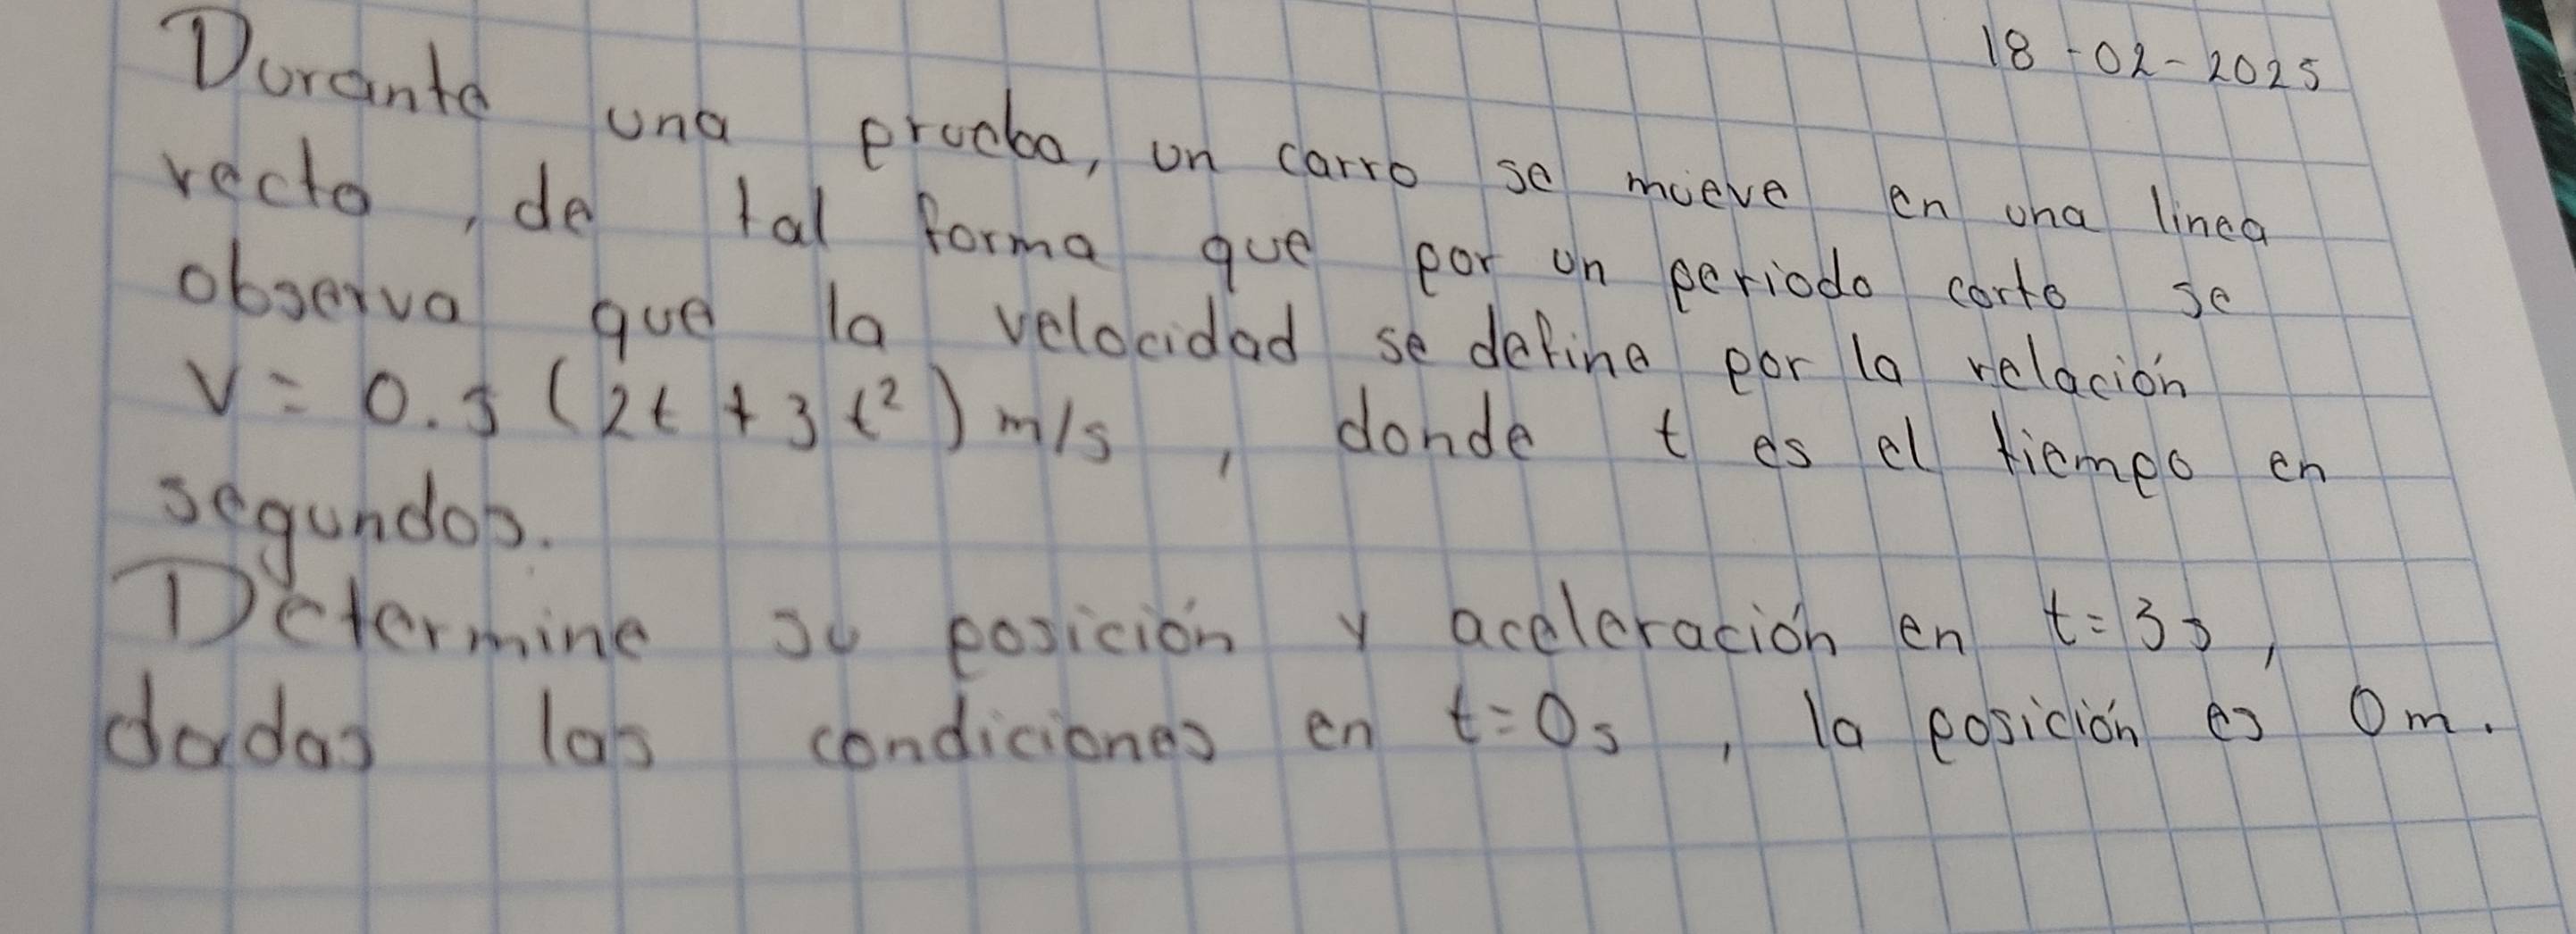 18-02-2025
Durante una prueba, un carro se mueve en una linea
recta, de tal forma que por un periodo corto se
observa que la velocidad se define por la relación
V = 0.3 (2t + 3t²) m/s, donde t es el tiempo en
segundos.
Determine su posición y aceleración en t=3s,
dadas las condiciones en t=0s, la posición es 0m.